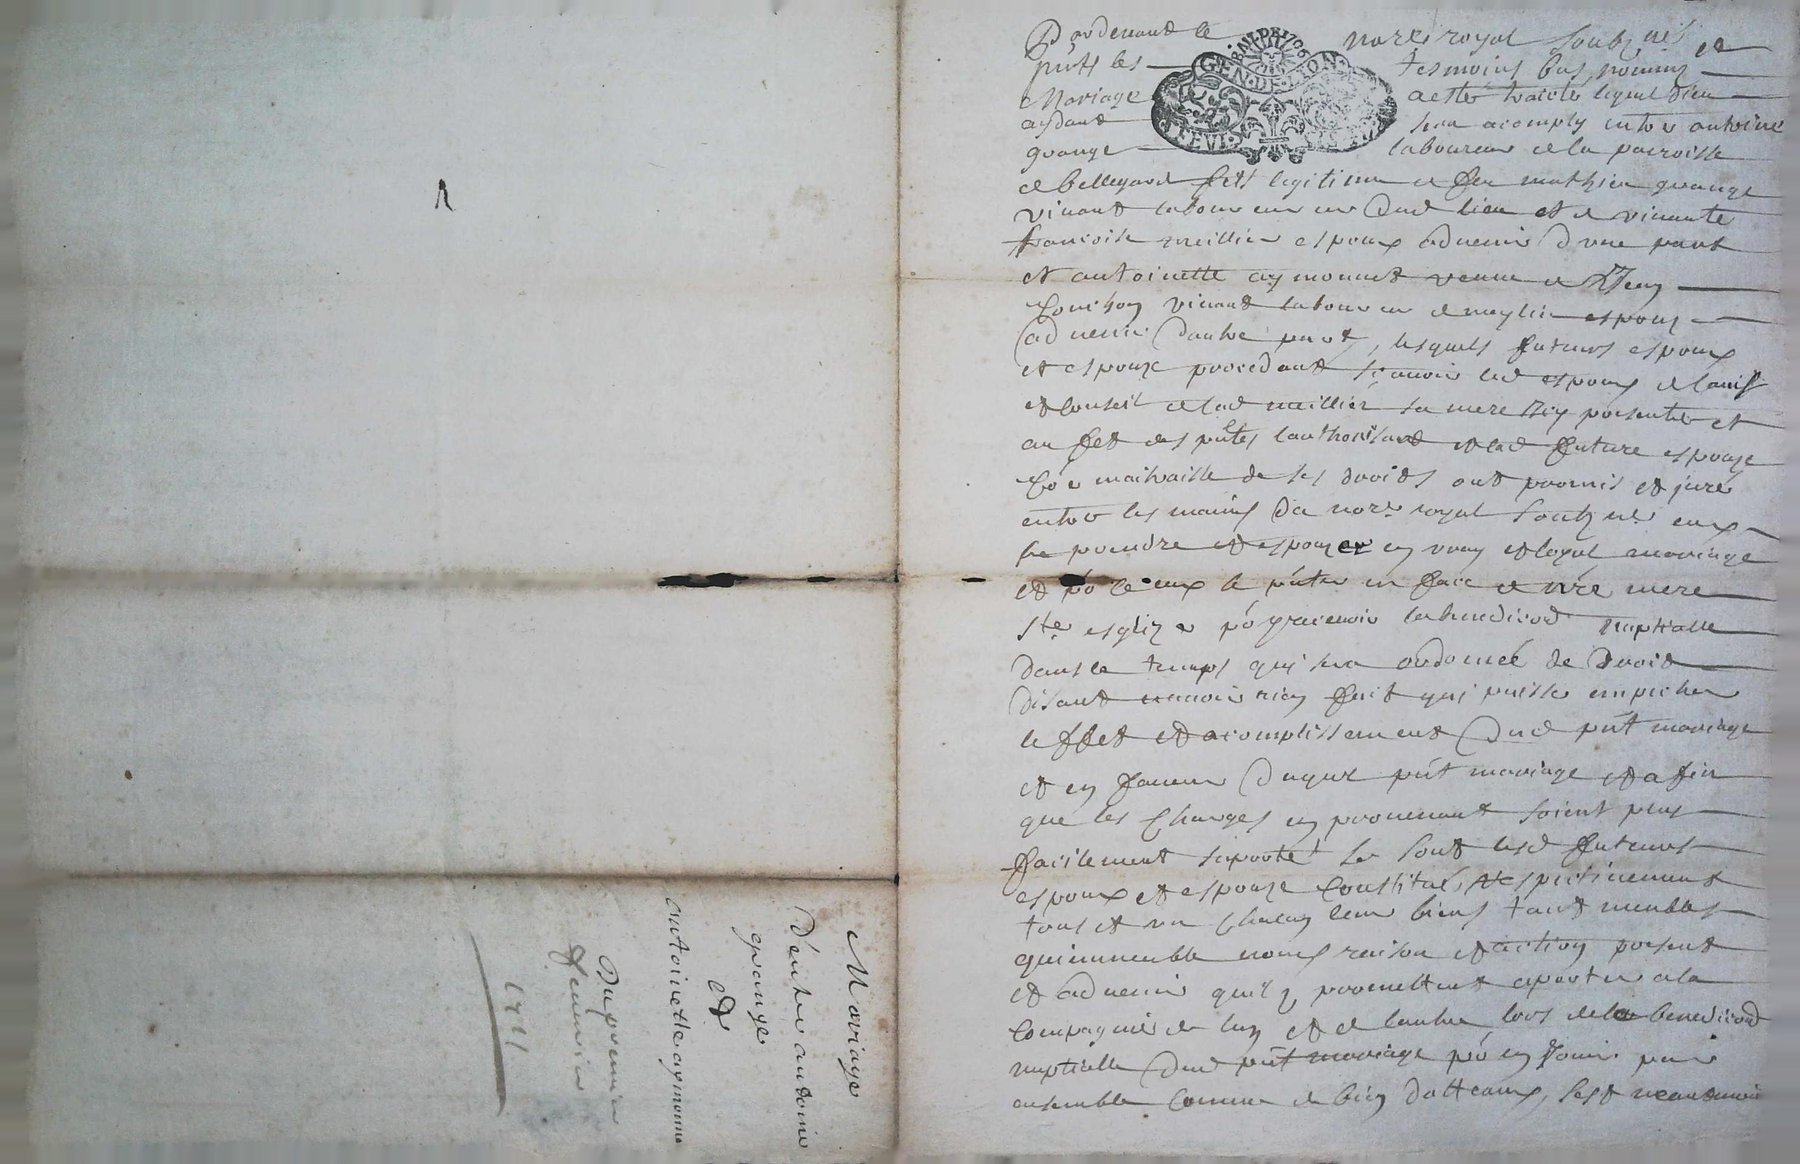 Pardevant le norre royal soubzné et
pnts les tesmoins bas nommez
Mariage a esté traicté lequel dieu
aydant sera acomply entre antoine
grange laboureur de la parroisse
de bellegard fils legitime de feu mathieu grange
vivant laboureur dud lieu et de vivante
francoise meillier espoux advenir d'une part
et antoinette aymonnet veuve de
vivant laboureur de espouze
advenir dautre part, lesquels futeurs espoux
et espouze procedant scavoir led espoux de lavis
et conseil de lad meillier sa mere icy presente et
au fet des pntes lauthorisant et lad future espouze
co'e maitraisse de ses droits ont promis et juré
entre les mains du norre royal soubzné eux
se prendre et espouzer en vray et loyal mariage
et po' ce eux se pnter en face de nre mere
Ste esglize po' y recevoir la benediction nuptialle
dans le temps qui sera ordonné de droit
disant navoir rien fait qui puisse empecher
leffet et acomplissement dud pnt mariage
et en faveur duquel pnt mariage et afin
que les charges en provenant soient plus
facilement suporté se sont lesd futeurs
espoux et espouze constitué respectivement
tous et un chacun leur biens tant meubles
quimmeuble noms raison et action present
et advenir quil promettent aporter a la
compagnie de lun et de lautre lors de la benediction
nuptialle dud pnt mariage po' en jouir par
ensemble comme de bien dotteaux, sest neantmoins
GEN·DE·LYON
Mariage
d'entre antoine
grange
et
antoinette aymonne
Du premier
fevrier
1711